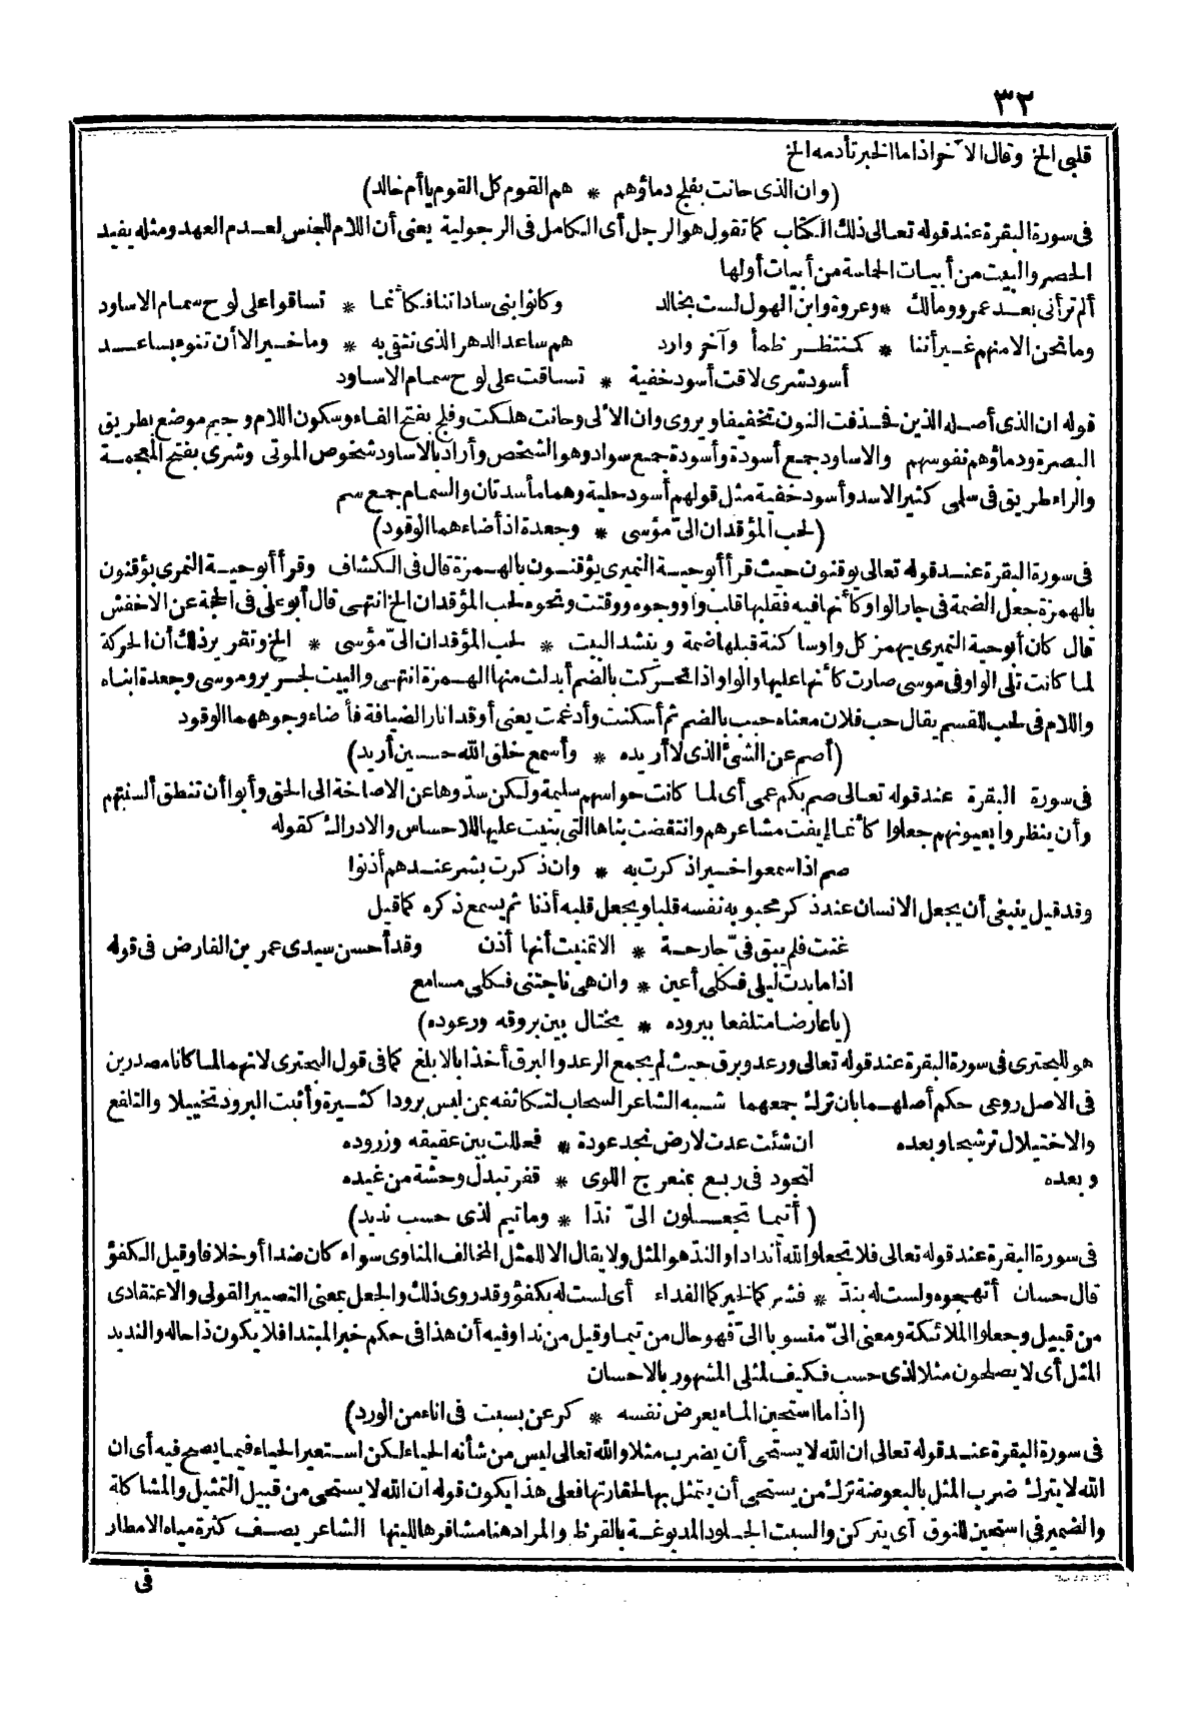 ٣٢
قلبى الخ وقال الآخر اذا ما الخبز تأدمه الخ
(وان الذى حانت بفلج دماؤهم * هم القوم كل القوم يا أم خالد)
فى سورة البقرة عند قوله تعالى ذلك الكتاب كما تقول هو الرجل أى الكامل فى الرجولية يعنى أن اللام للجنس لعدم العهد ومثله يفيد
الحصر والبيت من أبيات الحماسة من أبيات أولها
ألم ترأنى بعد عمرو ومالك * وعروة وابن الهول لست بخالد وكانوا بنى ساداتنا فكأنما * تساقوا على لوح سمام الاساود
وما نحن الا منهم غير أننا * كمنتظر ظمأ وآخر وارد هم ساعد الدهر الذى نتقى به * وما خير الا أن تنوء بساعد
أسود شرى لاقت أسود خفية * تساقت على لوح سمام الاساود
قوله ان الذى أصله الذين فحذفت النون تخفيفا ويروى وان الألى وحانت هلكت وفلج بفتح الفاء وسكون اللام وجيم موضع بطريق
البصرة ودماؤهم نفوسهم والاساود جمع أسودة وأسودة جمع سواد وهو الشخص وأراد بالاساود شخوص الموتى وشرى بفتح المعجمة
والراء طريق فى سلمى كثير الاسد وأسود خفية مثل قولهم أسود حلية وهما مأسدتان والسمام جمع سم
(لحب المؤقدان الىّ مؤسى * وجعدة اذ أضاءهما الوقود)
فى سورة البقرة عند قوله تعالى يوقنون حيث قرأ أبو حية النميرى يؤقنون بالهمزة قال فى الكشاف وقرأ أبو حية النمرى يؤقنون
بالهمزة جعل الضمة فى جار الواو كأنها فيه فقلبها قلب واو وجوه ووقتت ونحوه لحب المؤقدان الخ انتهى قال أبو على فى الحجة عن الاخفش
قال كان أبو حية النميرى يهمز كل واو ساكنة قبلها ضمة وينشد البيت * لحب المؤقدان الىّ مؤسى * الخ وتقرير ذلك أن الحركة
لما كانت تلى الواو فى موسى صارت كأنها عليها والواو اذا تحركت بالضم أبدلت منها الهمزة انتهى والبيت لجرير وموسى وجعدة ابناه
واللام فى لحب للقسم يقال حب فلان معناه حبب بالضم ثم أسكنت وأدغمت يعنى أوقدا نار الضيافة فأضاء وجوههما الوقود
(أصم عن الشئ الذى لا أريده * وأسمع خلق الله حين أريد)
فى سورة البقرة عند قوله تعالى صم بكم عمى أى لما كانت حواسهم سليمة ولكن سدّوها عن الاصاخة الى الحق وأبوا أن تنطق ألسنتهم
وأن ينظروا بعيونهم جعلوا كأنما إيفت مشاعرهم وانتقضت بناها التى بنيت عليها للاحساس والادراك كقوله
صم اذا سمعوا خيرا ذكرت به * وان ذكرت بشر عندهم أذنوا
وقد قيل ينبغى أن يجعل الانسان عند ذكر محبوبه نفسه قلبا ويجعل قلبه أذنا ثم يسمع ذكره كما قيل
غنت فلم يبق فىّ جارحة * الا تمنيت أنها أذن وقد أحسن سيدى عمر بن الفارض فى قوله
اذا ما بدت ليلى فكلى أعين * وان هى ناجتنى فكلى مسامع
(يا عارضا متلفعا ببروده * يختال بين بروقه ورعوده)
هو للبحترى فى سورة البقرة عند قوله تعالى ورعد وبرق حيث لم يجمع الرعد والبرق أخذا بالابلغ كما فى قول البحترى لانهما لما كانا مصدرين
فى الاصل روعى حكم أصلهما بان ترك جمعهما شبه الشاعر السحاب لتكاثفه بمن لبس برودا كثيرة وأثبت البرود تخييلا والتلفع
والاختيال ترشيحا وبعده ان شئت عدت لارض نجد عودة * فحللت بين عقيقه وزروده
وبعده لتجود فى ربع بمنعرج اللوى * قفر تبدّل وحشة من غيده
(أتيما تجعلون الىّ ندّا * وما تيم لذى حسب نديد)
فى سورة البقرة عند قوله تعالى فلا تجعلوا لله أندادا والندّ هو المثل ولا يقال الا للمثل المخالف المناوى سواء كان ضدا أو خلافا وقيل الكفؤ
قال حسان أتهجوه ولست له بندّ * فشركما لخيركما الفداء أى لست له بكفؤ وقد روى ذلك والجعل بمعنى التصيير القولى والاعتقادى
من قبيل وجعلوا الملائكة ومعنى الىّ منسوبا الىّ فهو حال من تيما وقيل من ندا وفيه أن هذا فى حكم خبر المبتدا فلا يكون ذا حاله والنديد
المثل أى لا يصلحون مثلا لذى حسب فكيف لمثلى المشهور بالاحسان
(اذا ما استحين الماء يعرض نفسه * كرعن بسبت فى اناء من الورد)
فى سورة البقرة عند قوله تعالى ان الله لا يستحيى أن يضرب مثلا والله تعالى ليس من شأنه الحياء لكن استعير الحياء فيما يصح فيه أى ان
الله لا يترك ضرب المثل بالبعوضة ترك من يستحيى أن يتمثل بها لحقارتها فعلى هذا يكون قوله ان الله لا يستحيى من قبيل التمثيل والمشاكلة
والضمير فى استحين للنوق أى يتركن والسبت الجلود المدبوغة بالقرظ والمراد هنا مشافرها للينها الشاعر يصف كثرة مياه الامطار
فى